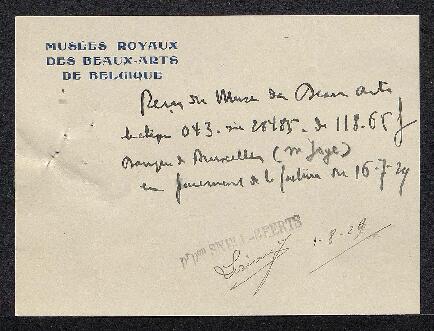 MUSÉES ROYAUX
DES BEAUX-ARTS
DE BELGIQUE
Reçu du Musée des Beaux arts
le chèque 043. 28485. de 118.65 f
Banque de Bruxelles (M Jage)
en paiement de la facture du 16-7-29
SNELL-GEERTS
1-8-29